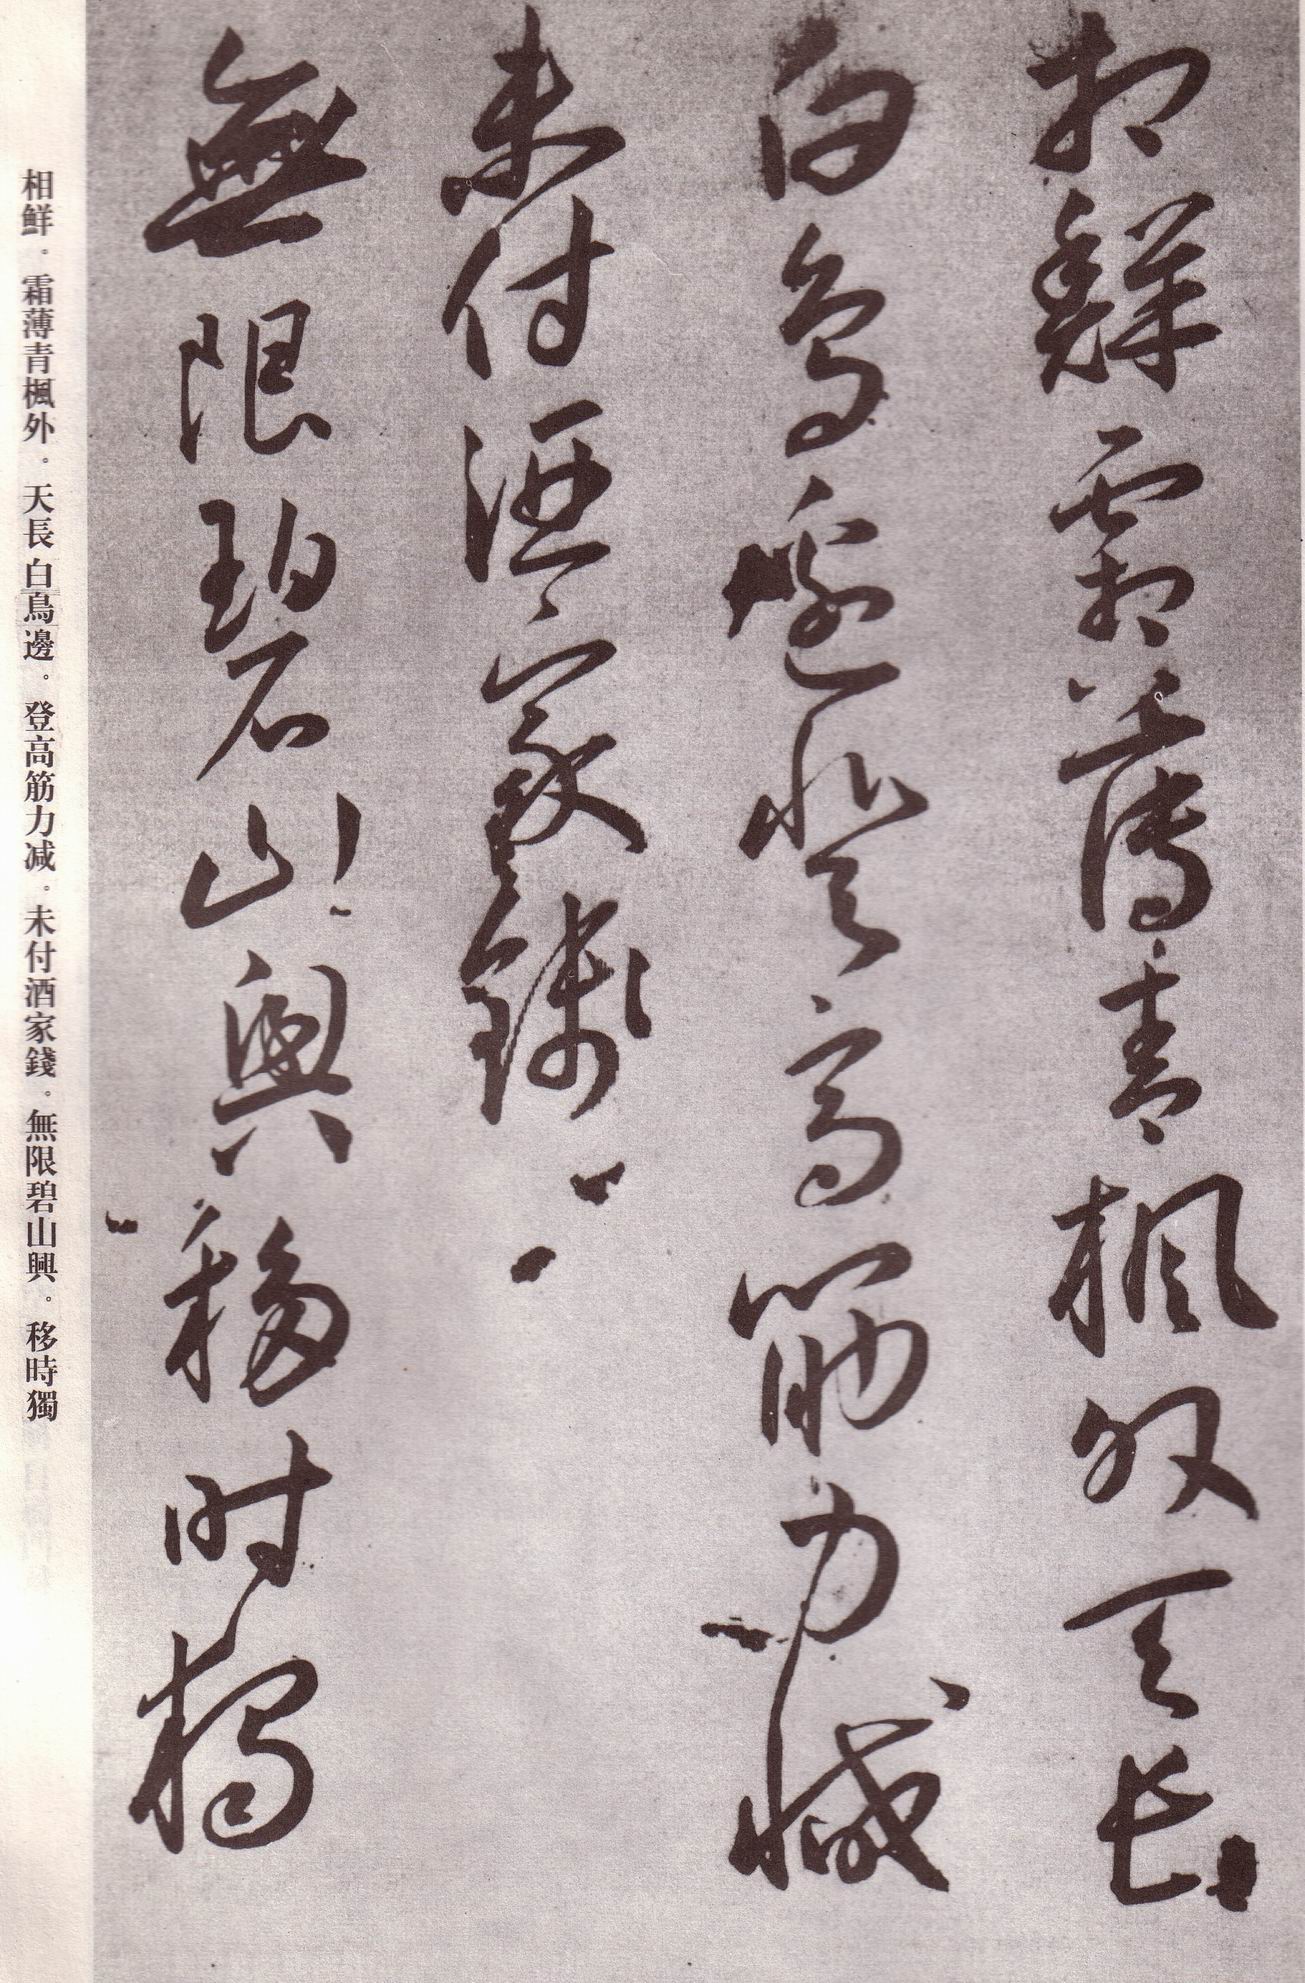 相鮮霜薄青楓外天長
白鳥邊登高筋力減
未付酒家錢
無限碧山興移時獨
相鮮。霜薄青楓外。天長白鳥邊。登高筋力减。未付酒家錢。無限碧山興。移時獨